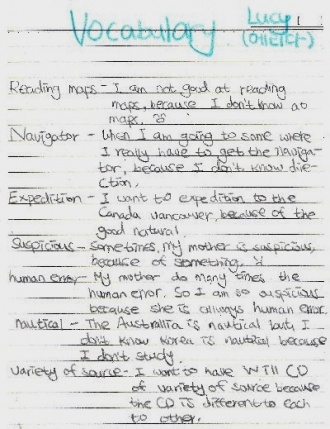 Vocabulary
Lucy
Reading maps - I am not good at reading
maps, because I don't know at
map.
Navigator - when I am going to some where
I really have to get the Naviga-
tor, because I don't know dire-
ction.
Expedition - I want to expedition to the
Canada vancouver, because of the
good natural.
Suspicious - sometimes, my mother is suspicious,
because of something.
human error - My mother do many times the
human error. So I am so suspicious
because she is always human error.
nautical - The Australlia is nautical but, I
don't know korea is nautical because
I don't study.
variety of source - I want to have Will CD
of variety of source because
the CD is different to each
to other.